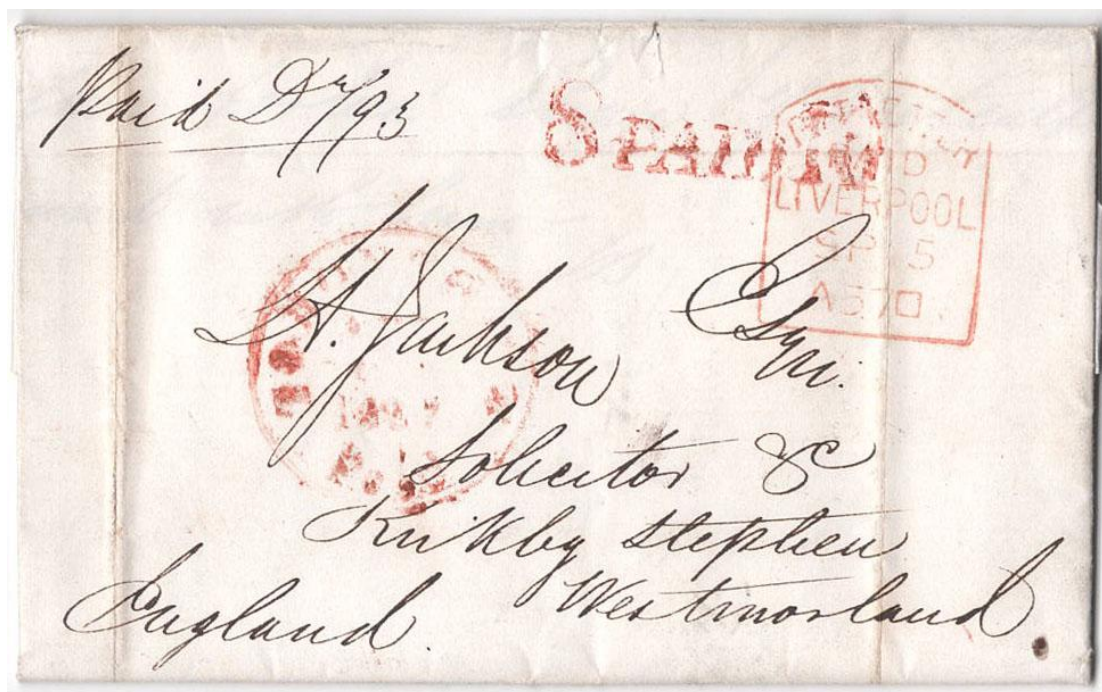 Paid Dr/93
8 PAID
PAID
LIVERPOOL
SP 5
A57□
H. Jackson Esqr.
Solicitor &c
Kirkby Stephen
Westmorland
England.